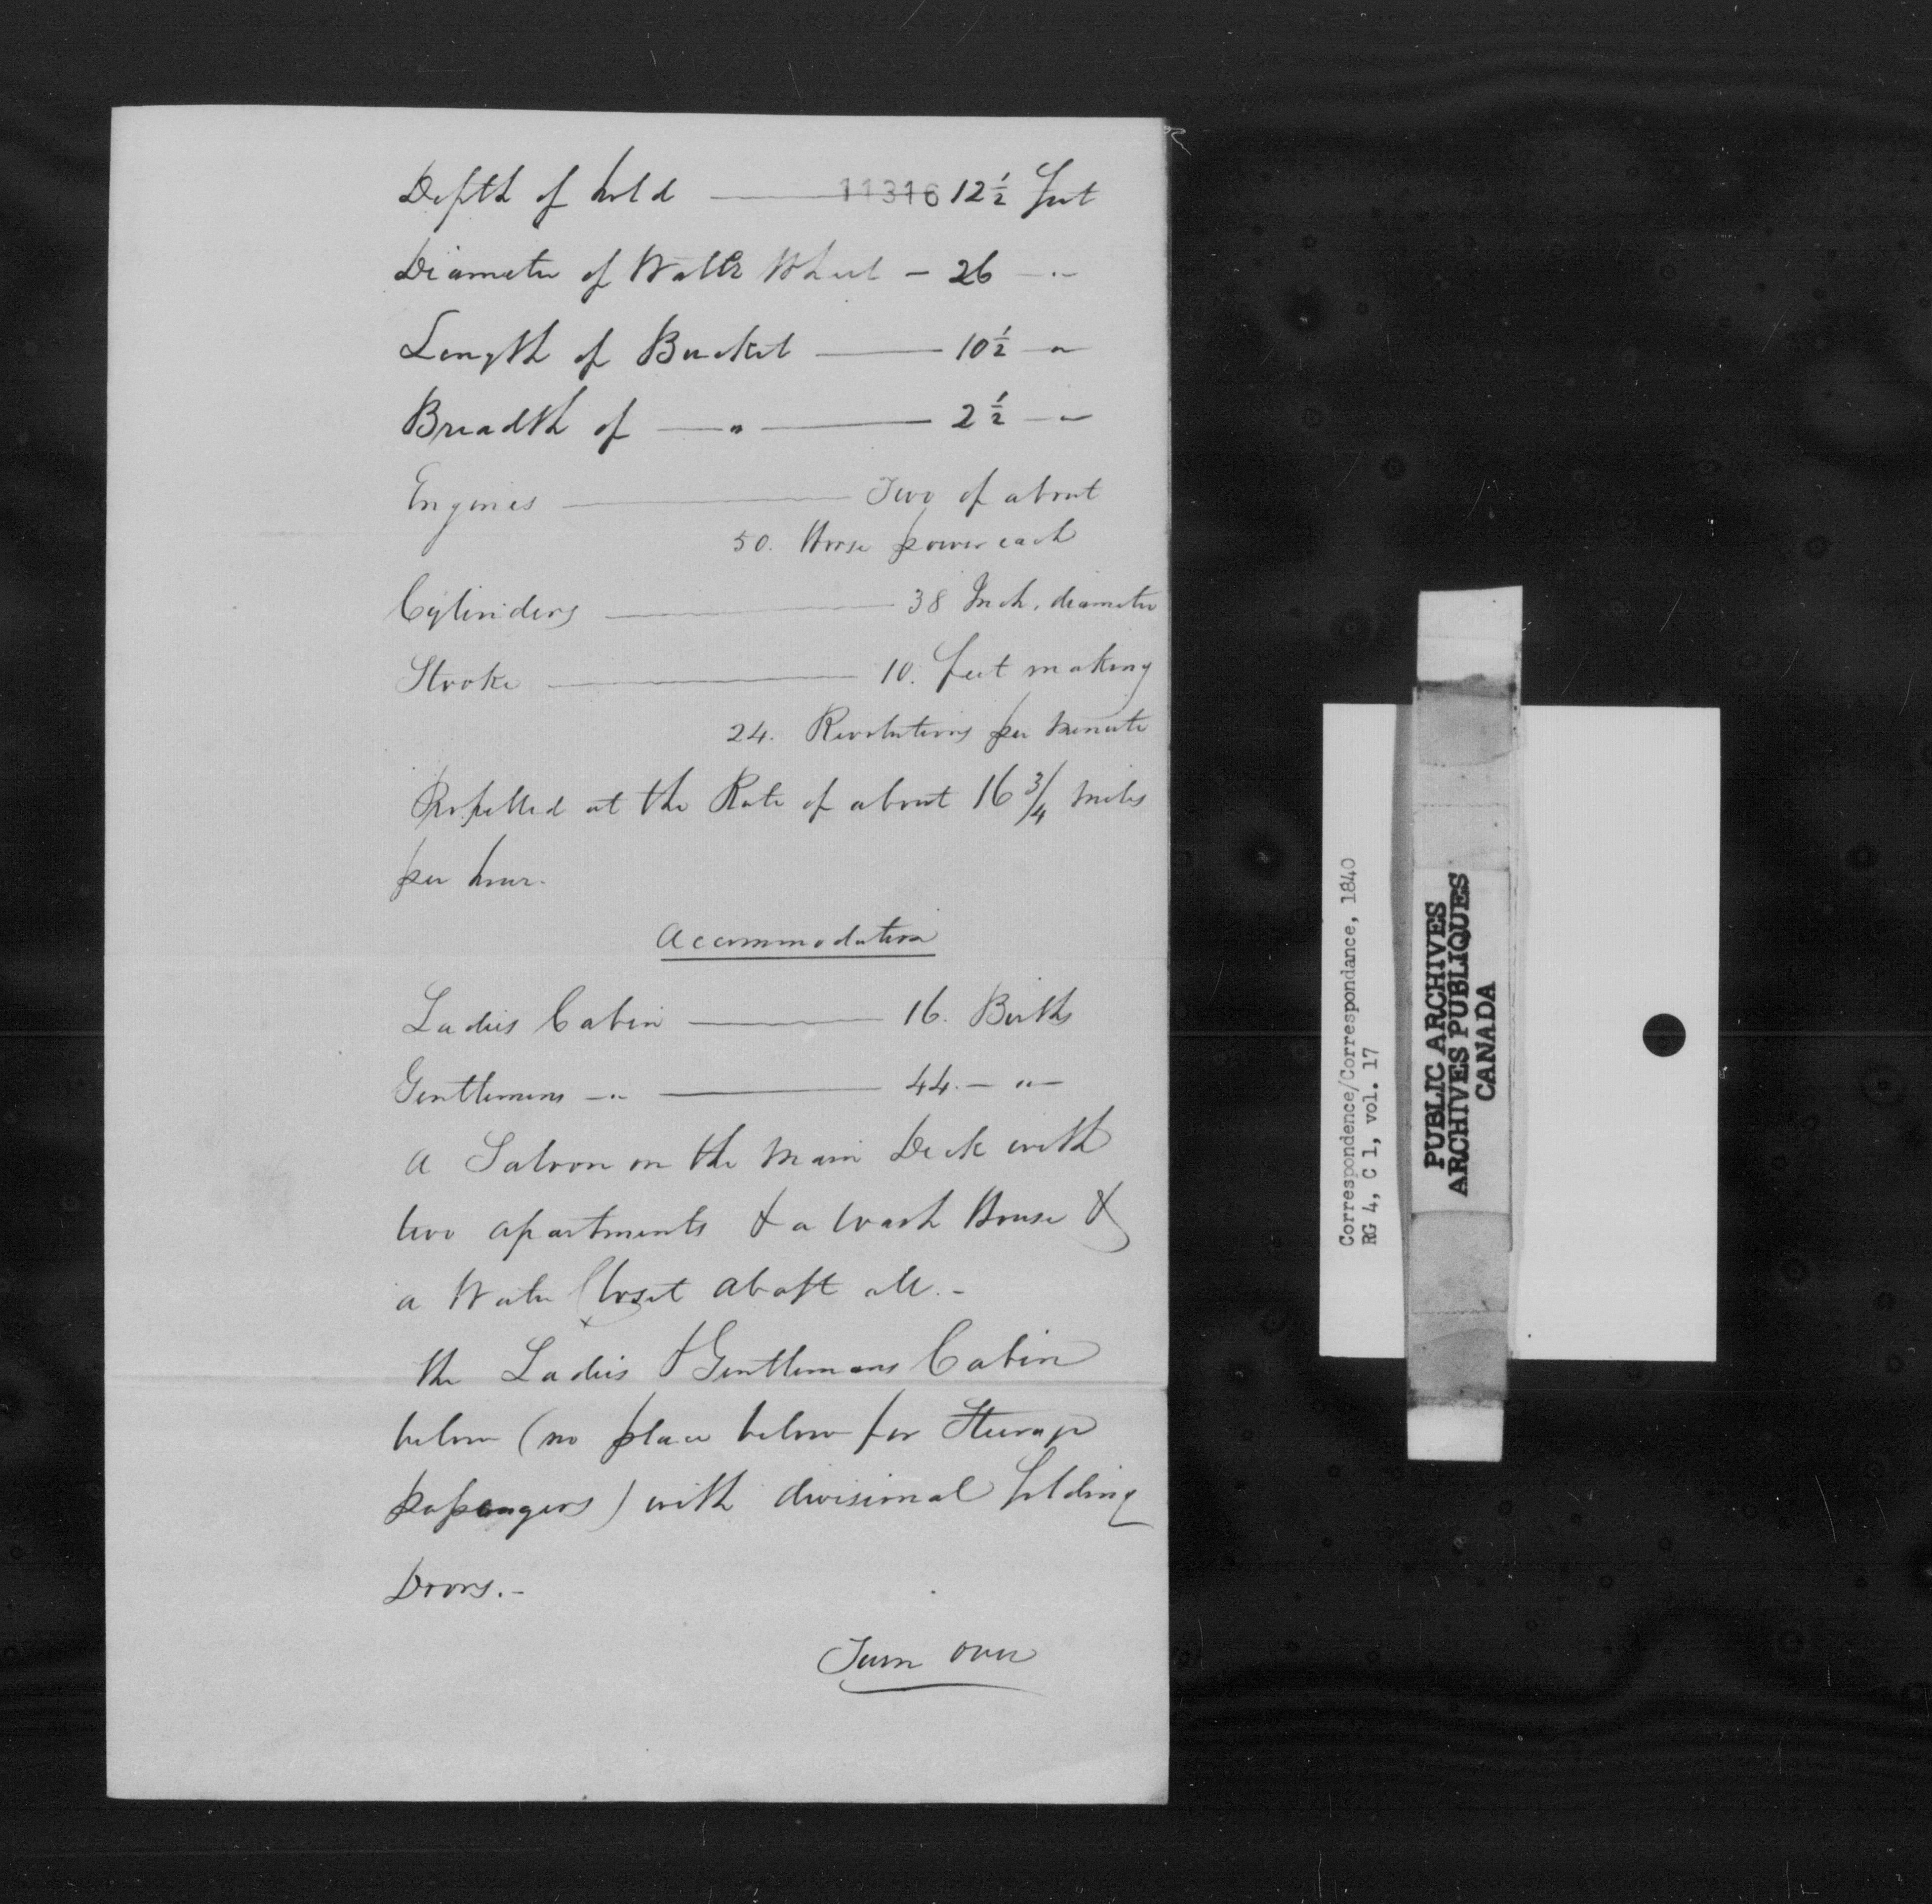 Depth of hold — 11316 12½ feet
Diameter of Water Wheel — 26 — " —
Length of Bucket — 10½ — " —
Breadth of — " — 2½ — " —
Engines — Two of about
50. Horse power each
Cylinders — 38 Inch. diameter
Stroke — 10. feet making
24. Revolutions per minute
Propelled at the Rate of about 16 3/4 miles
per hour.
Accommodation
Ladies Cabin — 16. Births
Gentlemens — " — 44. — " —
A Saloon on the Main Deck with
two apartments & a Wash House &
a Water Closet abaft all. -
the Ladies & Gentlemans Cabin
below (no place below for Steerage
passengers) with divisional folding
Doors. -
Turn over
Correspondence/Correspondance, 1840
RG 4, C 1, vol. 17
PUBLIC ARCHIVES
ARCHIVES PUBLIQUES
CANADA